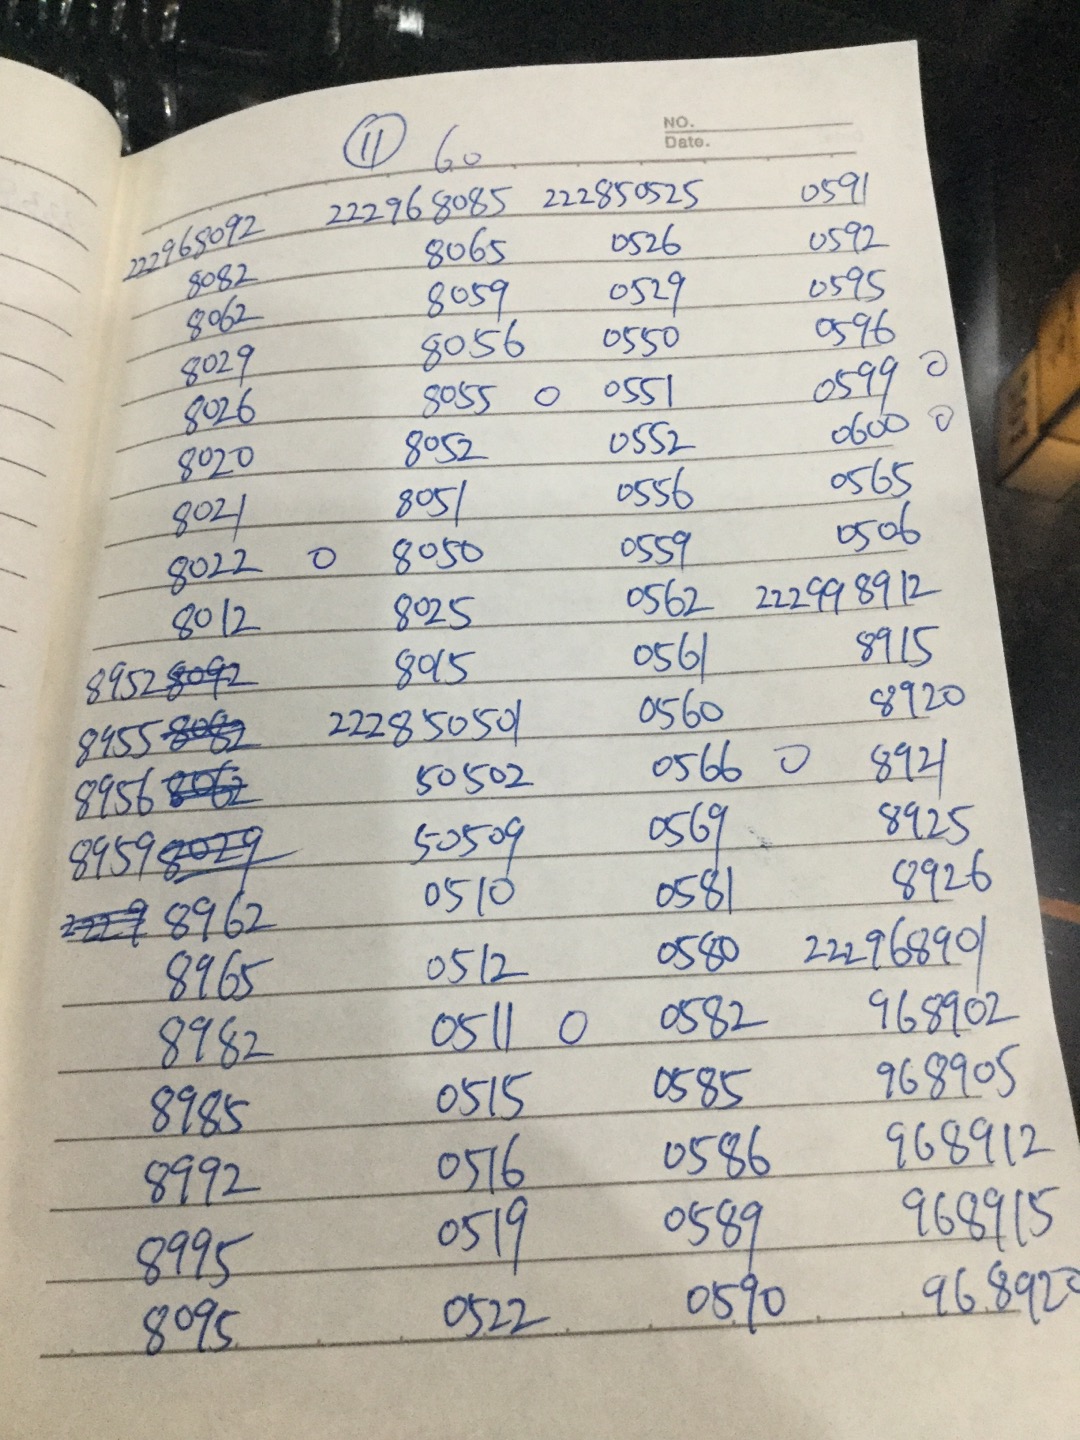 NO.
Date.
11 60
222968092 222968085 222850525 0591
8082 8065 0526 0592
8062 8059 0529 0595
8029 8056 0550 0596
8026 8055 0 0551 0599 0
8020 8052 0552 0600 0
8021 8051 0556 0565
8022 0 8050 0559 0506
8012 8025 0562 222998912
8952 8092 8015 0561 8915
8955 8082 222850501 0560 8920
8956 8062 50502 0566 0 8921
8959 8029 50509 0569 8925
2229 8962 0510 0581 8926
8965 0512 0580 222968901
8982 0511 0 0582 968902
8985 0515 0585 968905
8992 0516 0586 968912
8995 0519 0589 968915
8095 0522 0590 968920